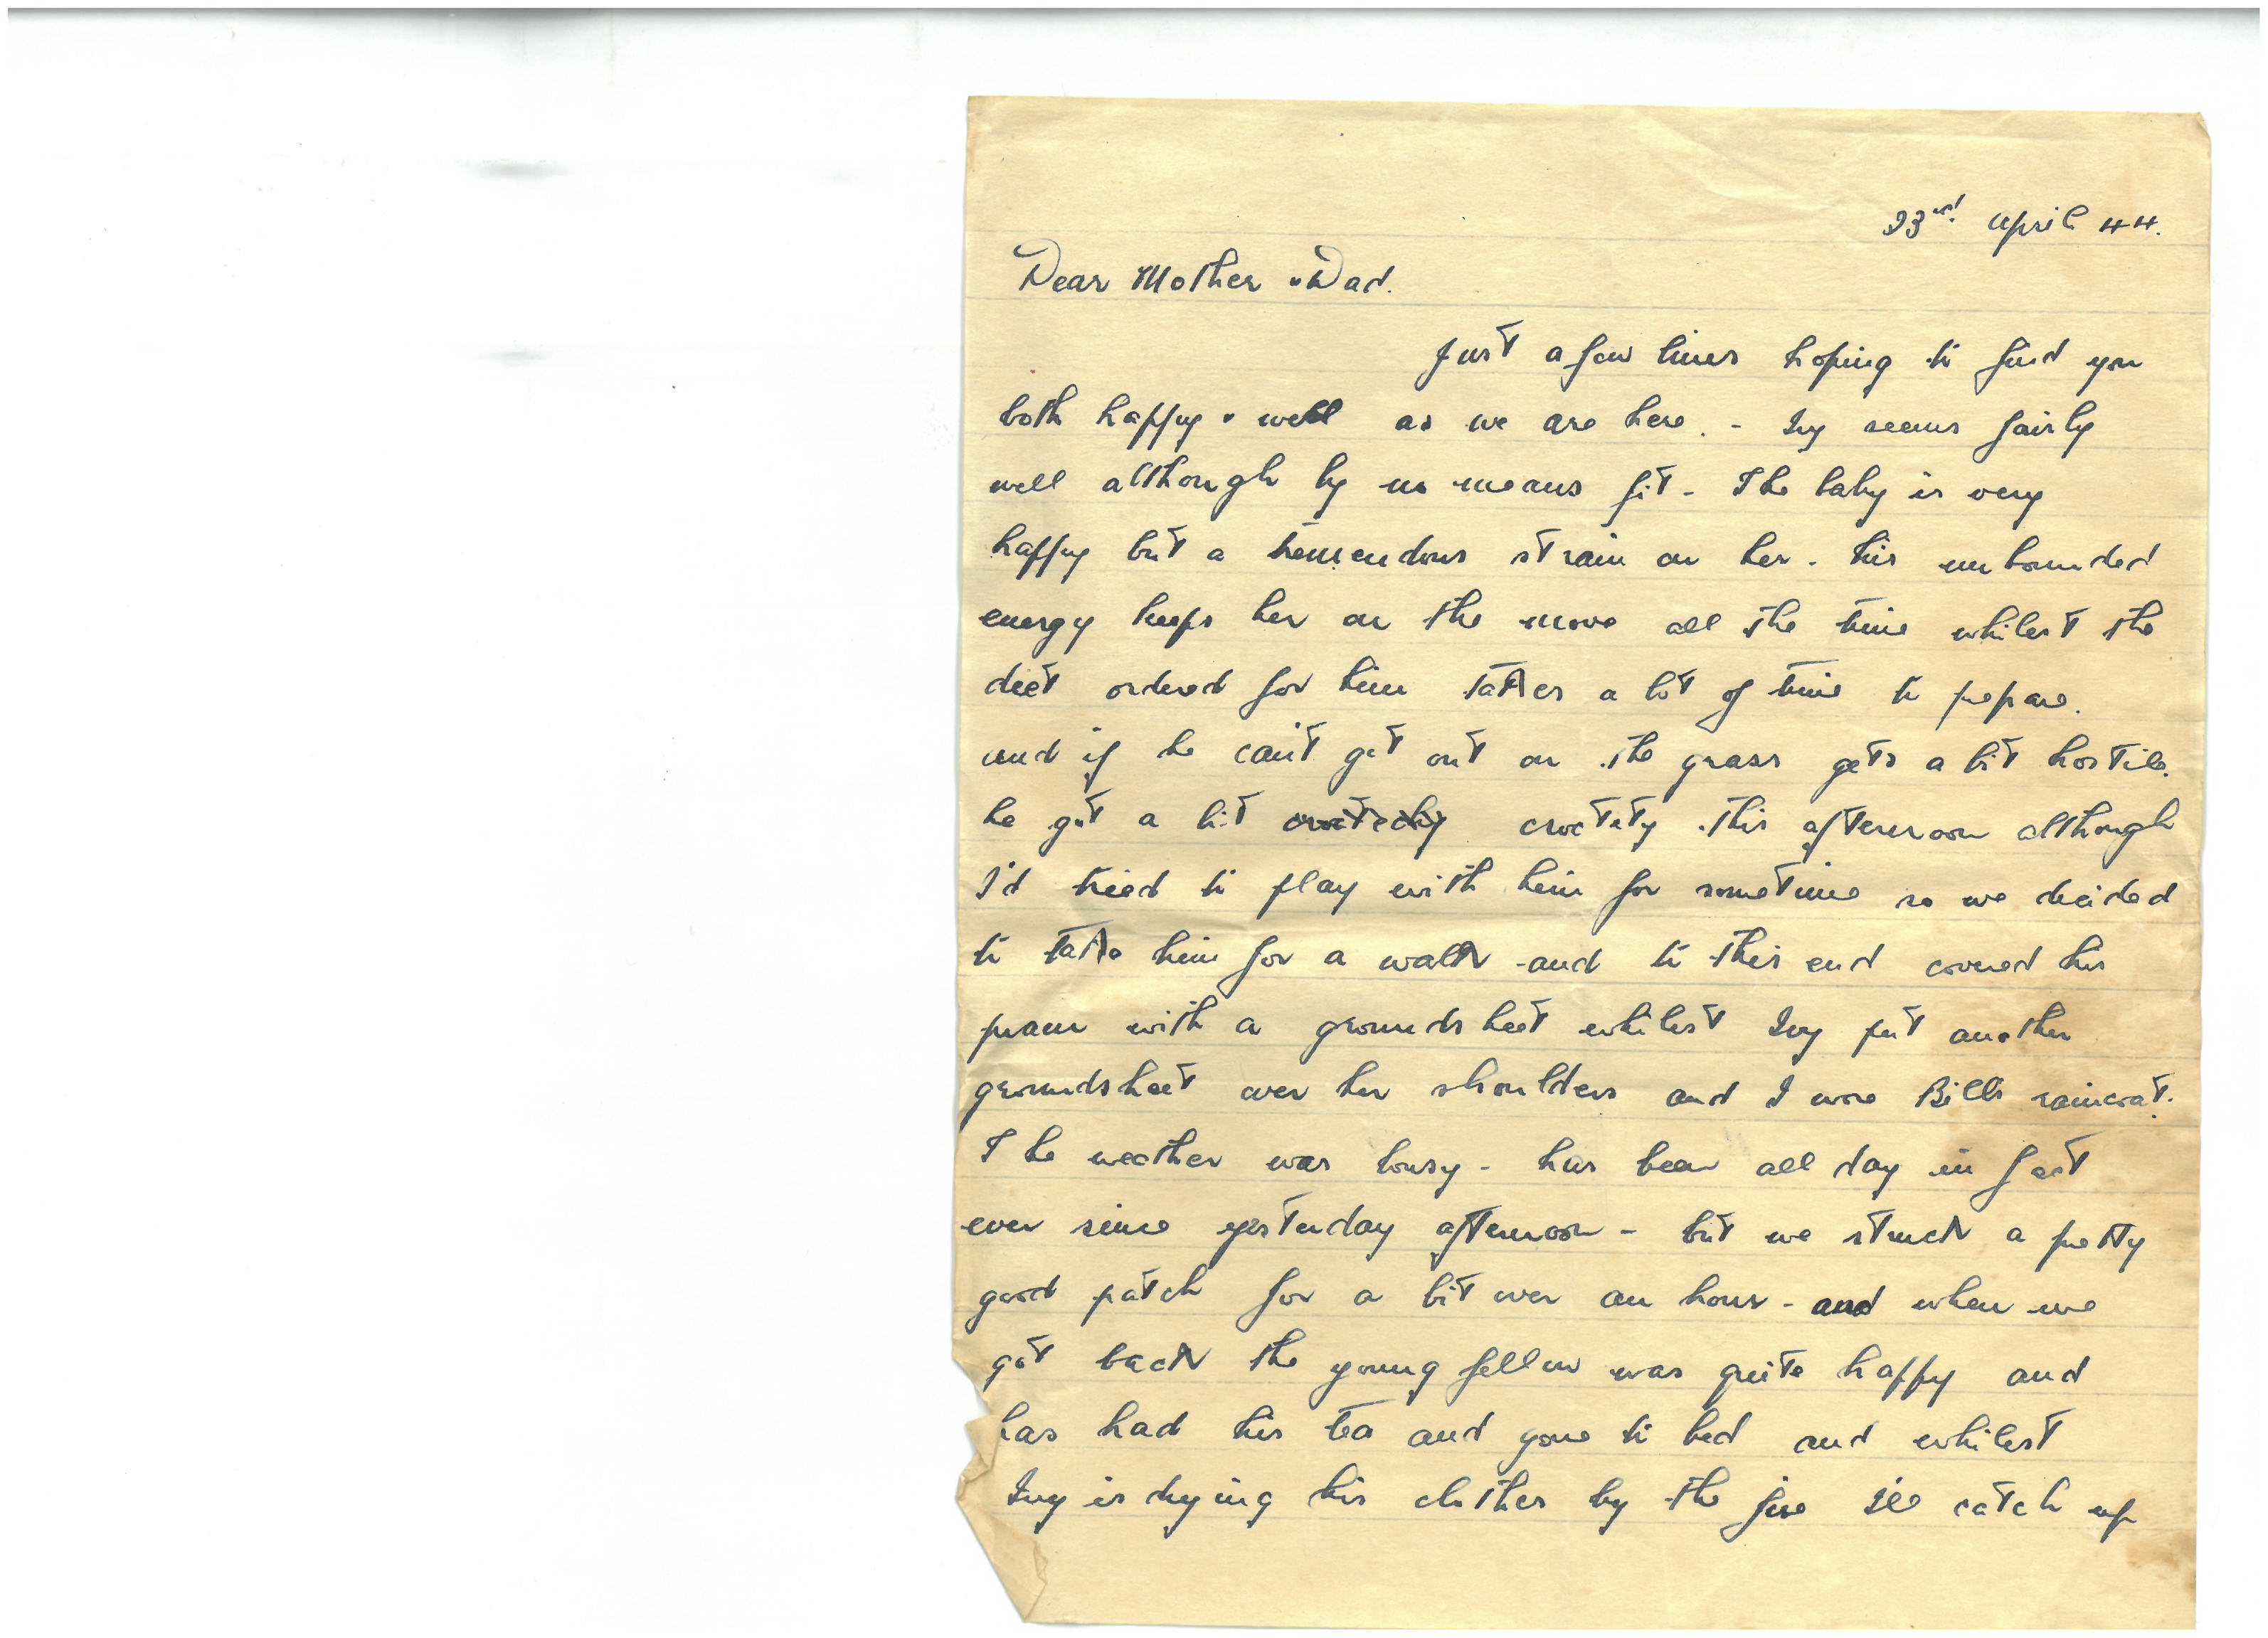 23rd April 44.
Dear Mother & Dad.
Just a few lines hoping to find you
both happy & well as we are here. - Ivy seems fairly
well although by no means fit - The baby is very
happy but a tremendous strain on her - his unbounded
energy keeps her on the move all the time whilst the
diet ordered for him takes a lot of time to prepare.
and if he can't get out on the grass gets a bit hostile.
he got a bit crotchety this afternoon although
I'd tried to play with him for sometime so we decided
to take him for a walk - and to this end covered his
pram with a groundsheet whilst Ivy put another
groundsheet over her shoulders and I wore Bills raincoat.
The weather was lousy - has been all day in fact
ever since yesterday afternoon - but we struck a pretty
good patch for a bit over an hour - and when we
got back the young fellow was quite happy and
has had his tea and gone to bed and whilst
Ivy is drying his clothes by the fire I'll catch up